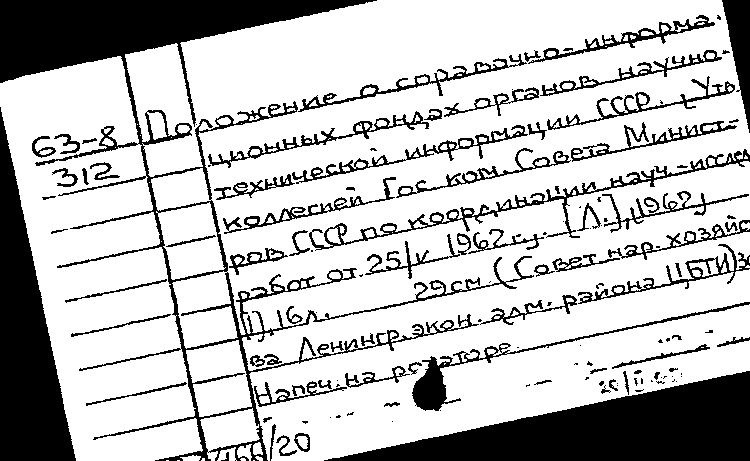 63-8
312
Положение о справочно-информа-
ционных фондах органов научно-
технической информации СССР. [Утв.
коллегией Гос. ком. Совета Минист-
ров СССР по координации науч.-исслед
работ от 25/V 1962 г.]. [Л.], [1962]
[1], 16 л. 29 см (Совет нар. хозяйс
ва Ленингр. экон. адм. района ЦБТИ)
Напеч. на ротаторе.
/20